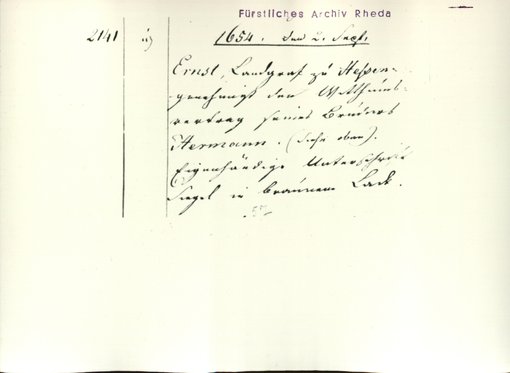 Fürstliches Archiv Rheda
2141 1654. den 2. Sept.
Ernst, Landgraf zu Hessen
genehmigt den
vertrag seines Bruders
Hermann. (siehe oben).
Eigenhändige Unterschrift
Siegel in braunem Lack.
57